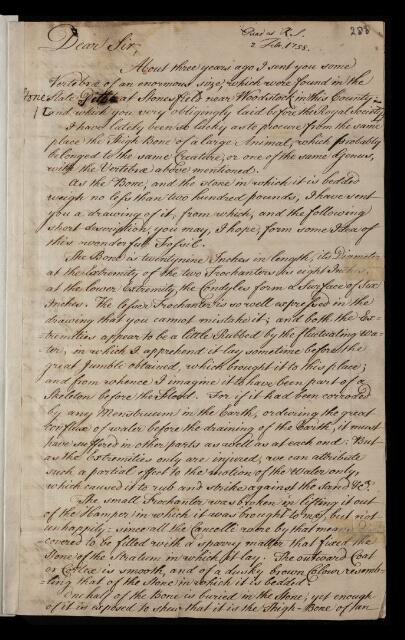 288
Read at R.S.
2 Feb. 1758.
Dear Sir,
About three years ago I sent you some
Vertebræ of an enormous size, which were found in the
Slate at Stonesfield near Woodstock in this County;
and which you very obligingly laid before the Royal Society.
I have lately been so lucky as to procure from the same
place the Thigh Bone of a large Animal, which probably
belonged to the same Creature, or one of the same Genus,
with the Vertebræ above mentioned.
As the Bone, and the stone in which it is bedded
weigh no less than two hundred pounds, I have sent
you a drawing of it, from which, and the following
short description, you may, I hope, form some Idea of
this wonderful Fossil.
The Bone is twenty nine Inches in length, its Diameter
at the extremity of the two Trochanters is eight Inches,
at the lower Extremity, the Condyles form a Surface of Six
Inches. The lesser Trochanter is so well expressed in the
drawing that you cannot mistake it; and both the Ex-
tremities appear to be a little Rubbed by the fluctuating Wa-
ter, in which I apprehend it lay sometime before the
great Jumble obtained, which brought it to this place;
and from whence I imagine it to have been part of a
Skeleton before the Flood. For if it had been corroded
by any Menstruum in the Earth, or during the great
conflux of water before the draining of the Earth, it must
have suffered in other parts as well as at each end: But
as the Extremities only are injured, we can attribute
such a partial effect to the motion of the Water only,
which caused it to rub and strike against the Sand &c.
The small Trochanter was broken in lifting it out
of the Hamper in which it was brought to me, but not
unhappily: since all the Cancelli were by that means dis-
covered to be filled with a sparry matter that fixed the
Stone of the Stratum in which it lay. The outward Coat
or Cortex is smooth, and of a dusky brown Colour resemb-
ling that of the Stone in which it is bedded.
One half of the Bone is buried in the Stone; yet enough
of it is exposed to shew that it is the Thigh-Bone of an